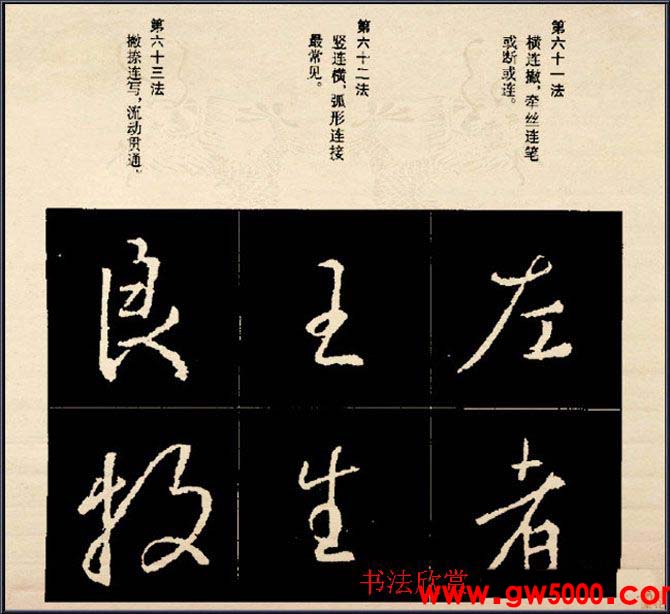 第六十一法
横连撇，牵丝连笔
或断或连。
第六十二法
竖连横、弧形连接
最常见。
第六十三法
撇捺连写，流动贯通。
左
者
王
生
良
牧
书法欣赏
www.gw5000.com